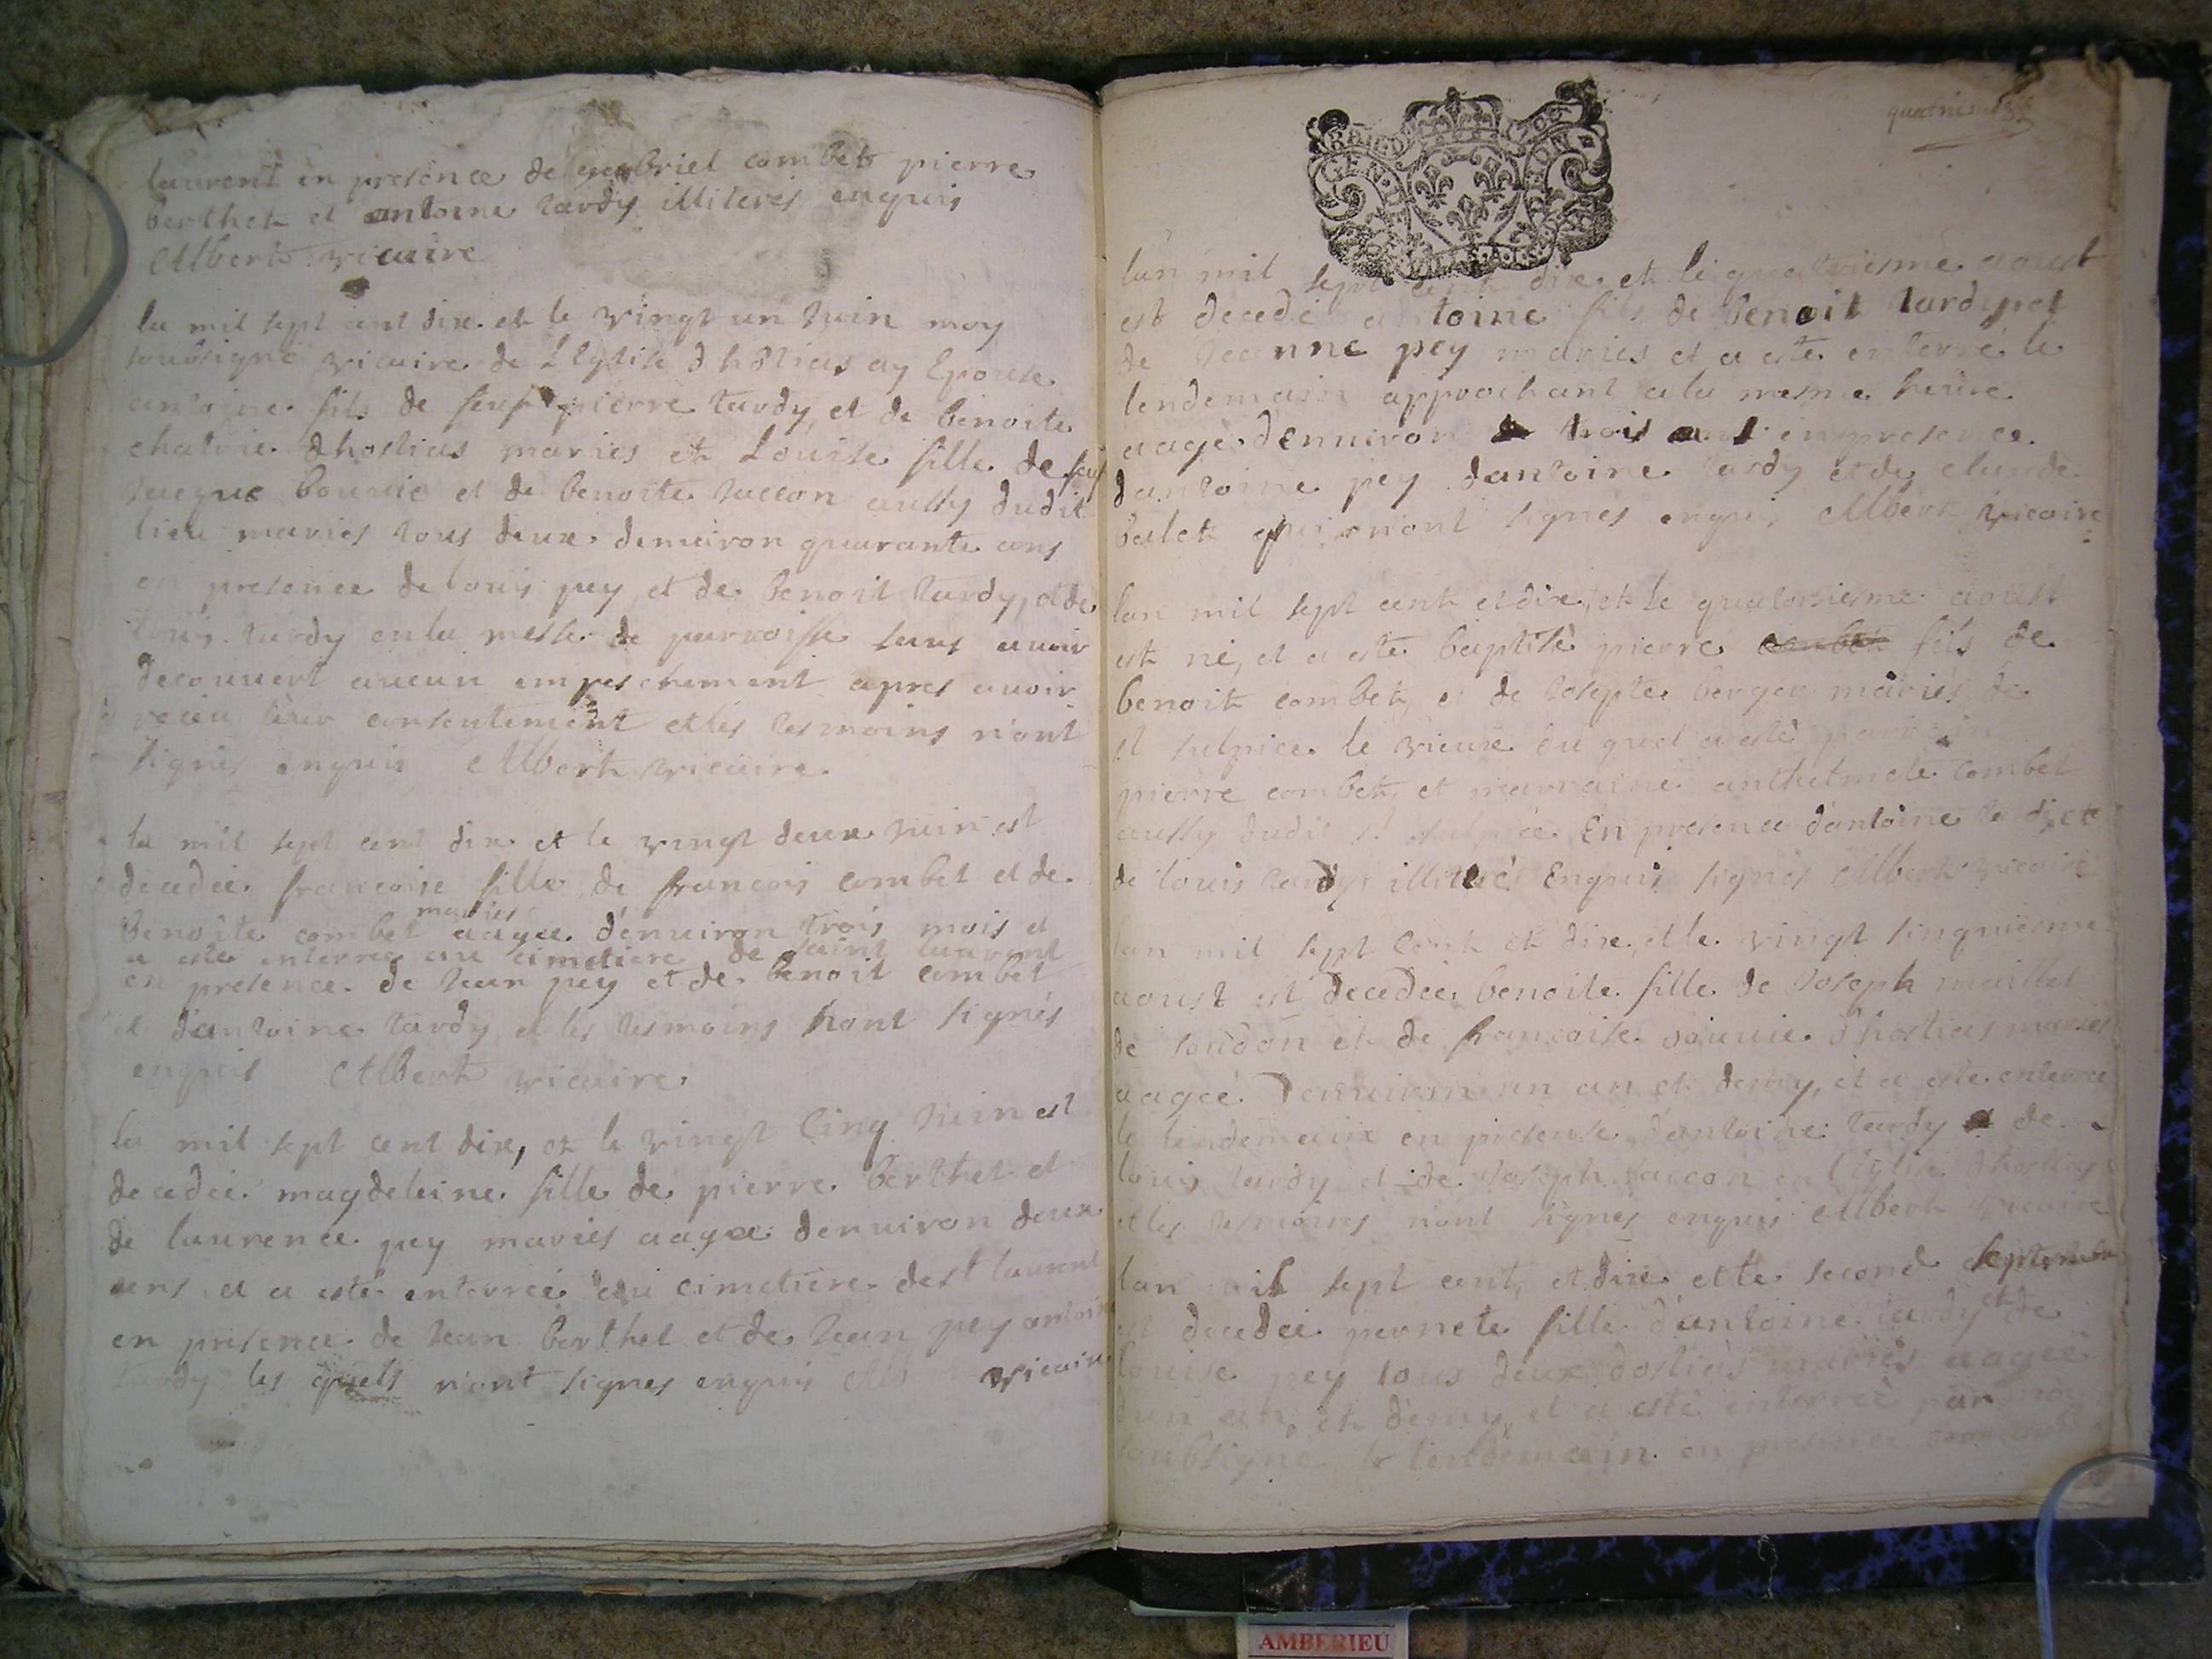 laurent en presence de gabriel combet pierre
berthet et antoine tardy illiterés enquis
Albert vicaire
la mil sept cent dix et le vingt un Juin moy
soubsigné vicaire de L Eglise d hostias ay Epousé
antoine fils de feuf pierre tardy, et de benoite
chatrie d hostias mariés et Louise fille de feuf
Jacque bouvie et de benoite Jaccon aussy dudit
lieu mariés tous deux denuiron quarante ans
en presence de louis pey et de benoit tardy, et de
louis tardy en la messe de parroisse sans auoir
decouuert aucun empeschement apres auoir
receu leur consentement et les tesmoins n'ont
signés enquis Albert vicaire
la mil sept cent dix et le vingt deux Juin est
decedée francoise fille de francois combet et de
mariés
benoite combet aagee d'enuiron trois mois et
a esté enterrée au cimetiere de saint laurent
en presence de Jean pey et de benoit combet
et d'antoine tardy et les tesmoins n'ont signés
enquis Albert vicaire
la mil sept cent dix, et le vingt Cinq Juin est
decedée magdeleine fille de pierre berthet et
de laurence pey mariés aagée denuiron deux
ans et a esté enterrée au cimetiere de st laurent
en presence de Jean berthet et de Jean pey antoine
tardy les quels n'ont signes enquis vicaire
GEN DE
l'an mil sept cent dix et le quatriesme aoust
est decedé antoine fils de benoit tardy et
de Jeanne pey mariés et a esté enterré le
lendemain approchant a la mesme heure
aagé d'enuiron trois ans en presence
d'antoine pey d'antoine tardy et de claude
balet qui n'ont signés enquis Albert vicaire
lan mil sept cent et dix, et le quatorsiesme aoust
est né, et a esté baptisé pierre fils de
benoit combet, et de Josepte berger mariés de
st sulpice le vieux du quel a esté parrain
pierre combet, et marraine anthelmete combet
aussy dudit st sulpice En presence d'antoine tardy et
de louis tardy illiterés Enquis signés Albert vicaire
lan mil sept Cent et dix, et le vingt sinquiesme
aoust est decedée benoite fille de Joseph maillet
de et de francoise d hostias mariés
aagée Denuiron un an et demy, et a esté enterrée
le lendemain en presense d'antoine tardy de
louis tardy et de Joseph Jaccon en l Eglise d hostias
et les tesmoins n'ont signés enquis Albert vicaire
lan mil sept cent, et dix et le second septembre
est decedée pernete fille d'antoine tardy et de
louise pey tous deux dostias mariés aagée
dun an, et demy, et a esté enterrée par moy
soubsigné le lendemain en presence
AMBERIEU